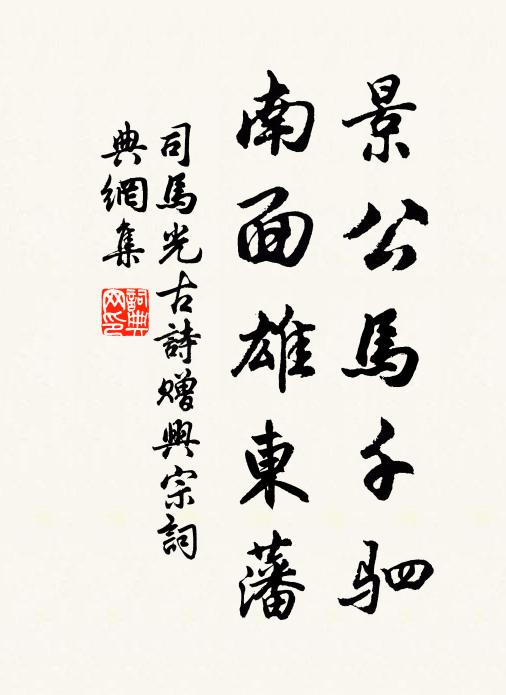 景公馬千駟
南面雄東藩
司馬光古詩贈興宗詞
典網集
詞典
网印